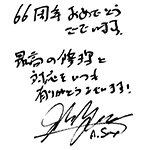 66周年おめでとう
ございます。
最高の修理と
対応をいつも
ありがとうございます!